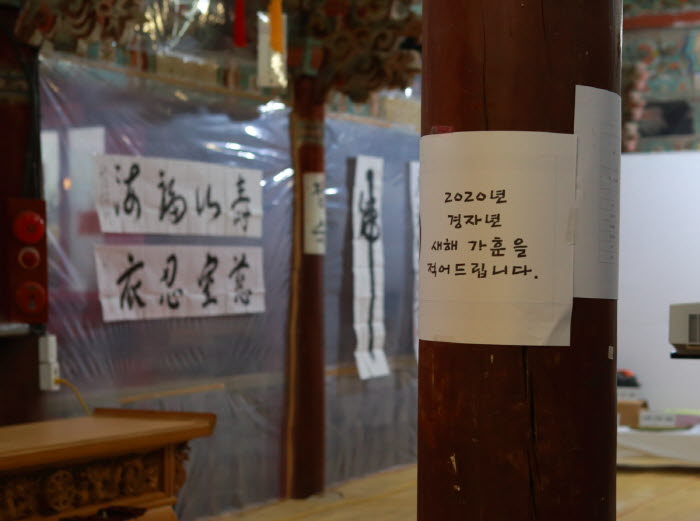 2020년
경자년
새해 가훈을
적어드립니다.
海福山壽
衣忍室慈